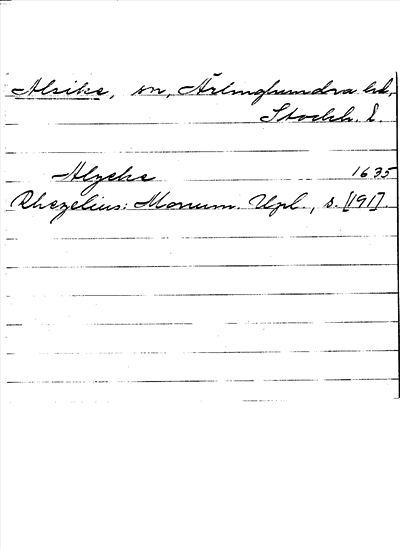 Alsike, sn, Ärlinghundra hd,
Stockh. L.
Alzeke 1635
Rhezelius: Monum. Upl., s. [191].